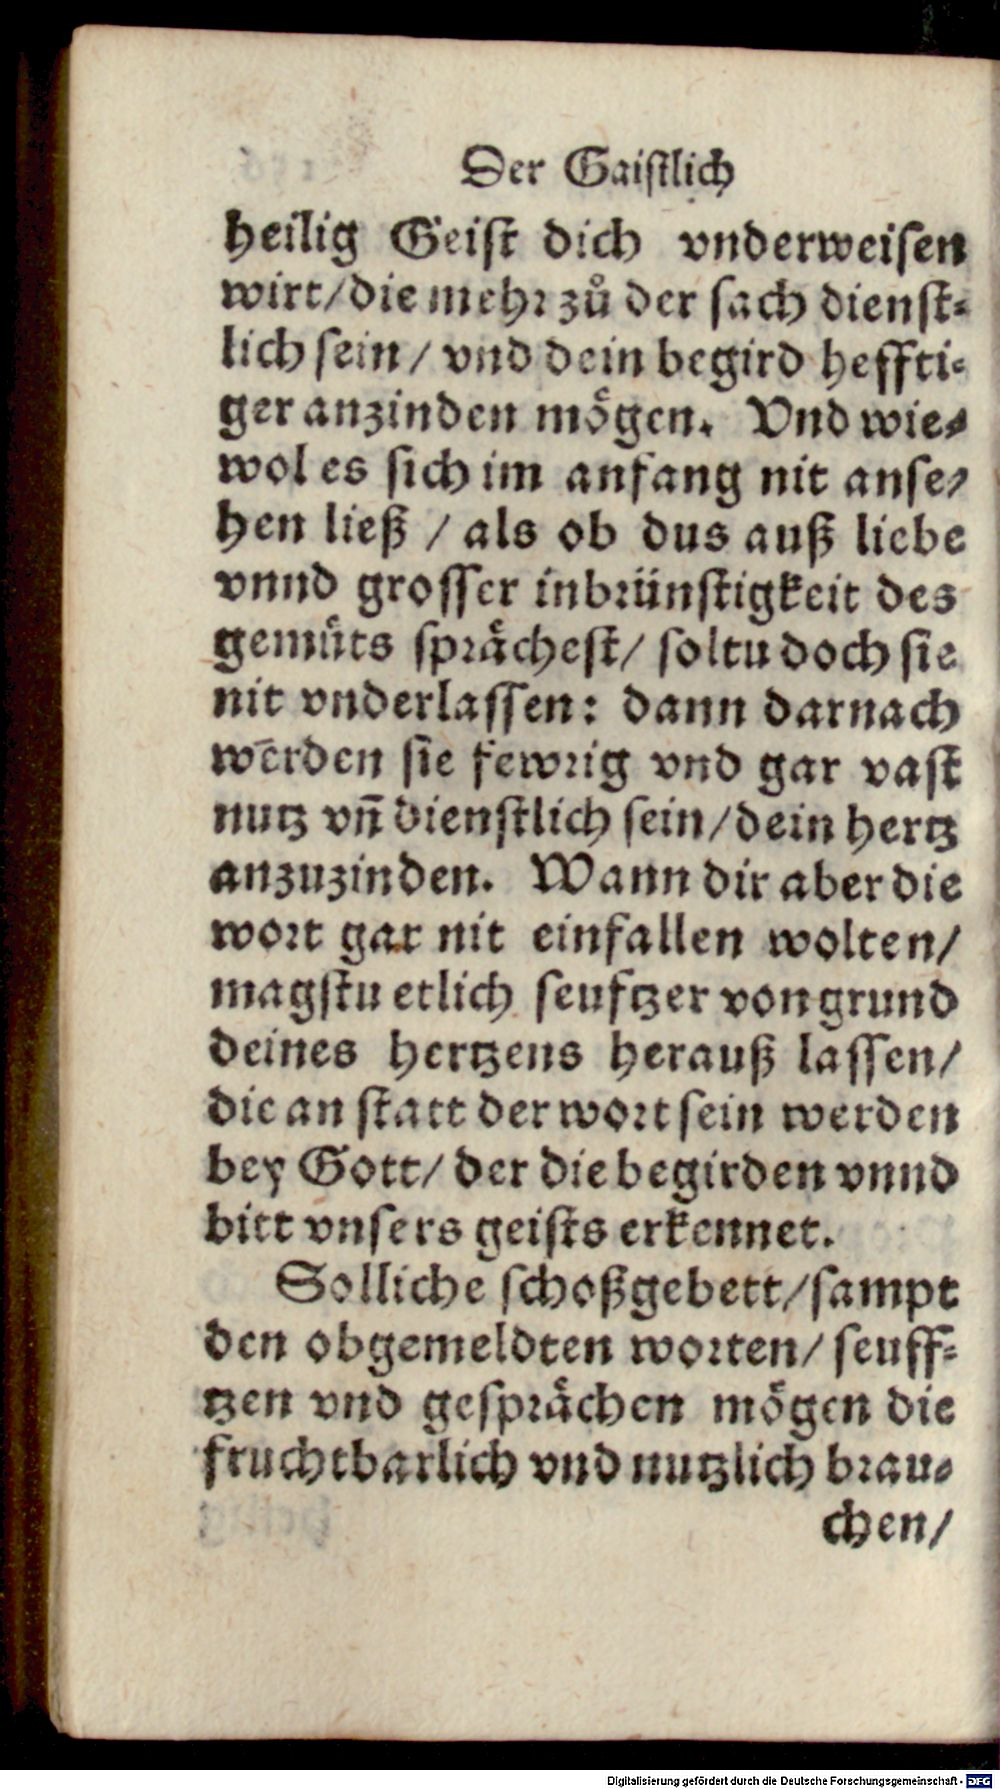 Der Gaistlich
heilig Geist dich vnderweisen
wirt/die mehr zů der sach dienst-
lich sein/ vnd dein begird heffti-
ger anzinden mögen. Vnd wie-
wol es sich im anfang nit anse-
hen ließ / als ob dus auß liebe
vnnd grosser inbrünstigkeit des
gemüts sprächest/ soltu doch sie
nit vnderlassen: dann darnach
werden sie fewrig vnd gar vast
nutz vñ dienstlich sein/dein hertz
anzuzinden. Wann dir aber die
wort gar nit einfallen wolten/
magstu etlich seuftzer von grund
deines hertzens herauß lassen/
die an statt der wort sein werden
bey Gott/ der die begirden vnnd
bitt vnsers geists erkennet.
Solliche schoßgebett/sampt
den obgemeldten worten/ seuff-
tzen vnd gesprächen mögen die
fruchtbarlich vnd nutzlich brau-
chen/
Digitalisierung gefördert durch die Deutsche Forschungsgemeinschaft - DFG